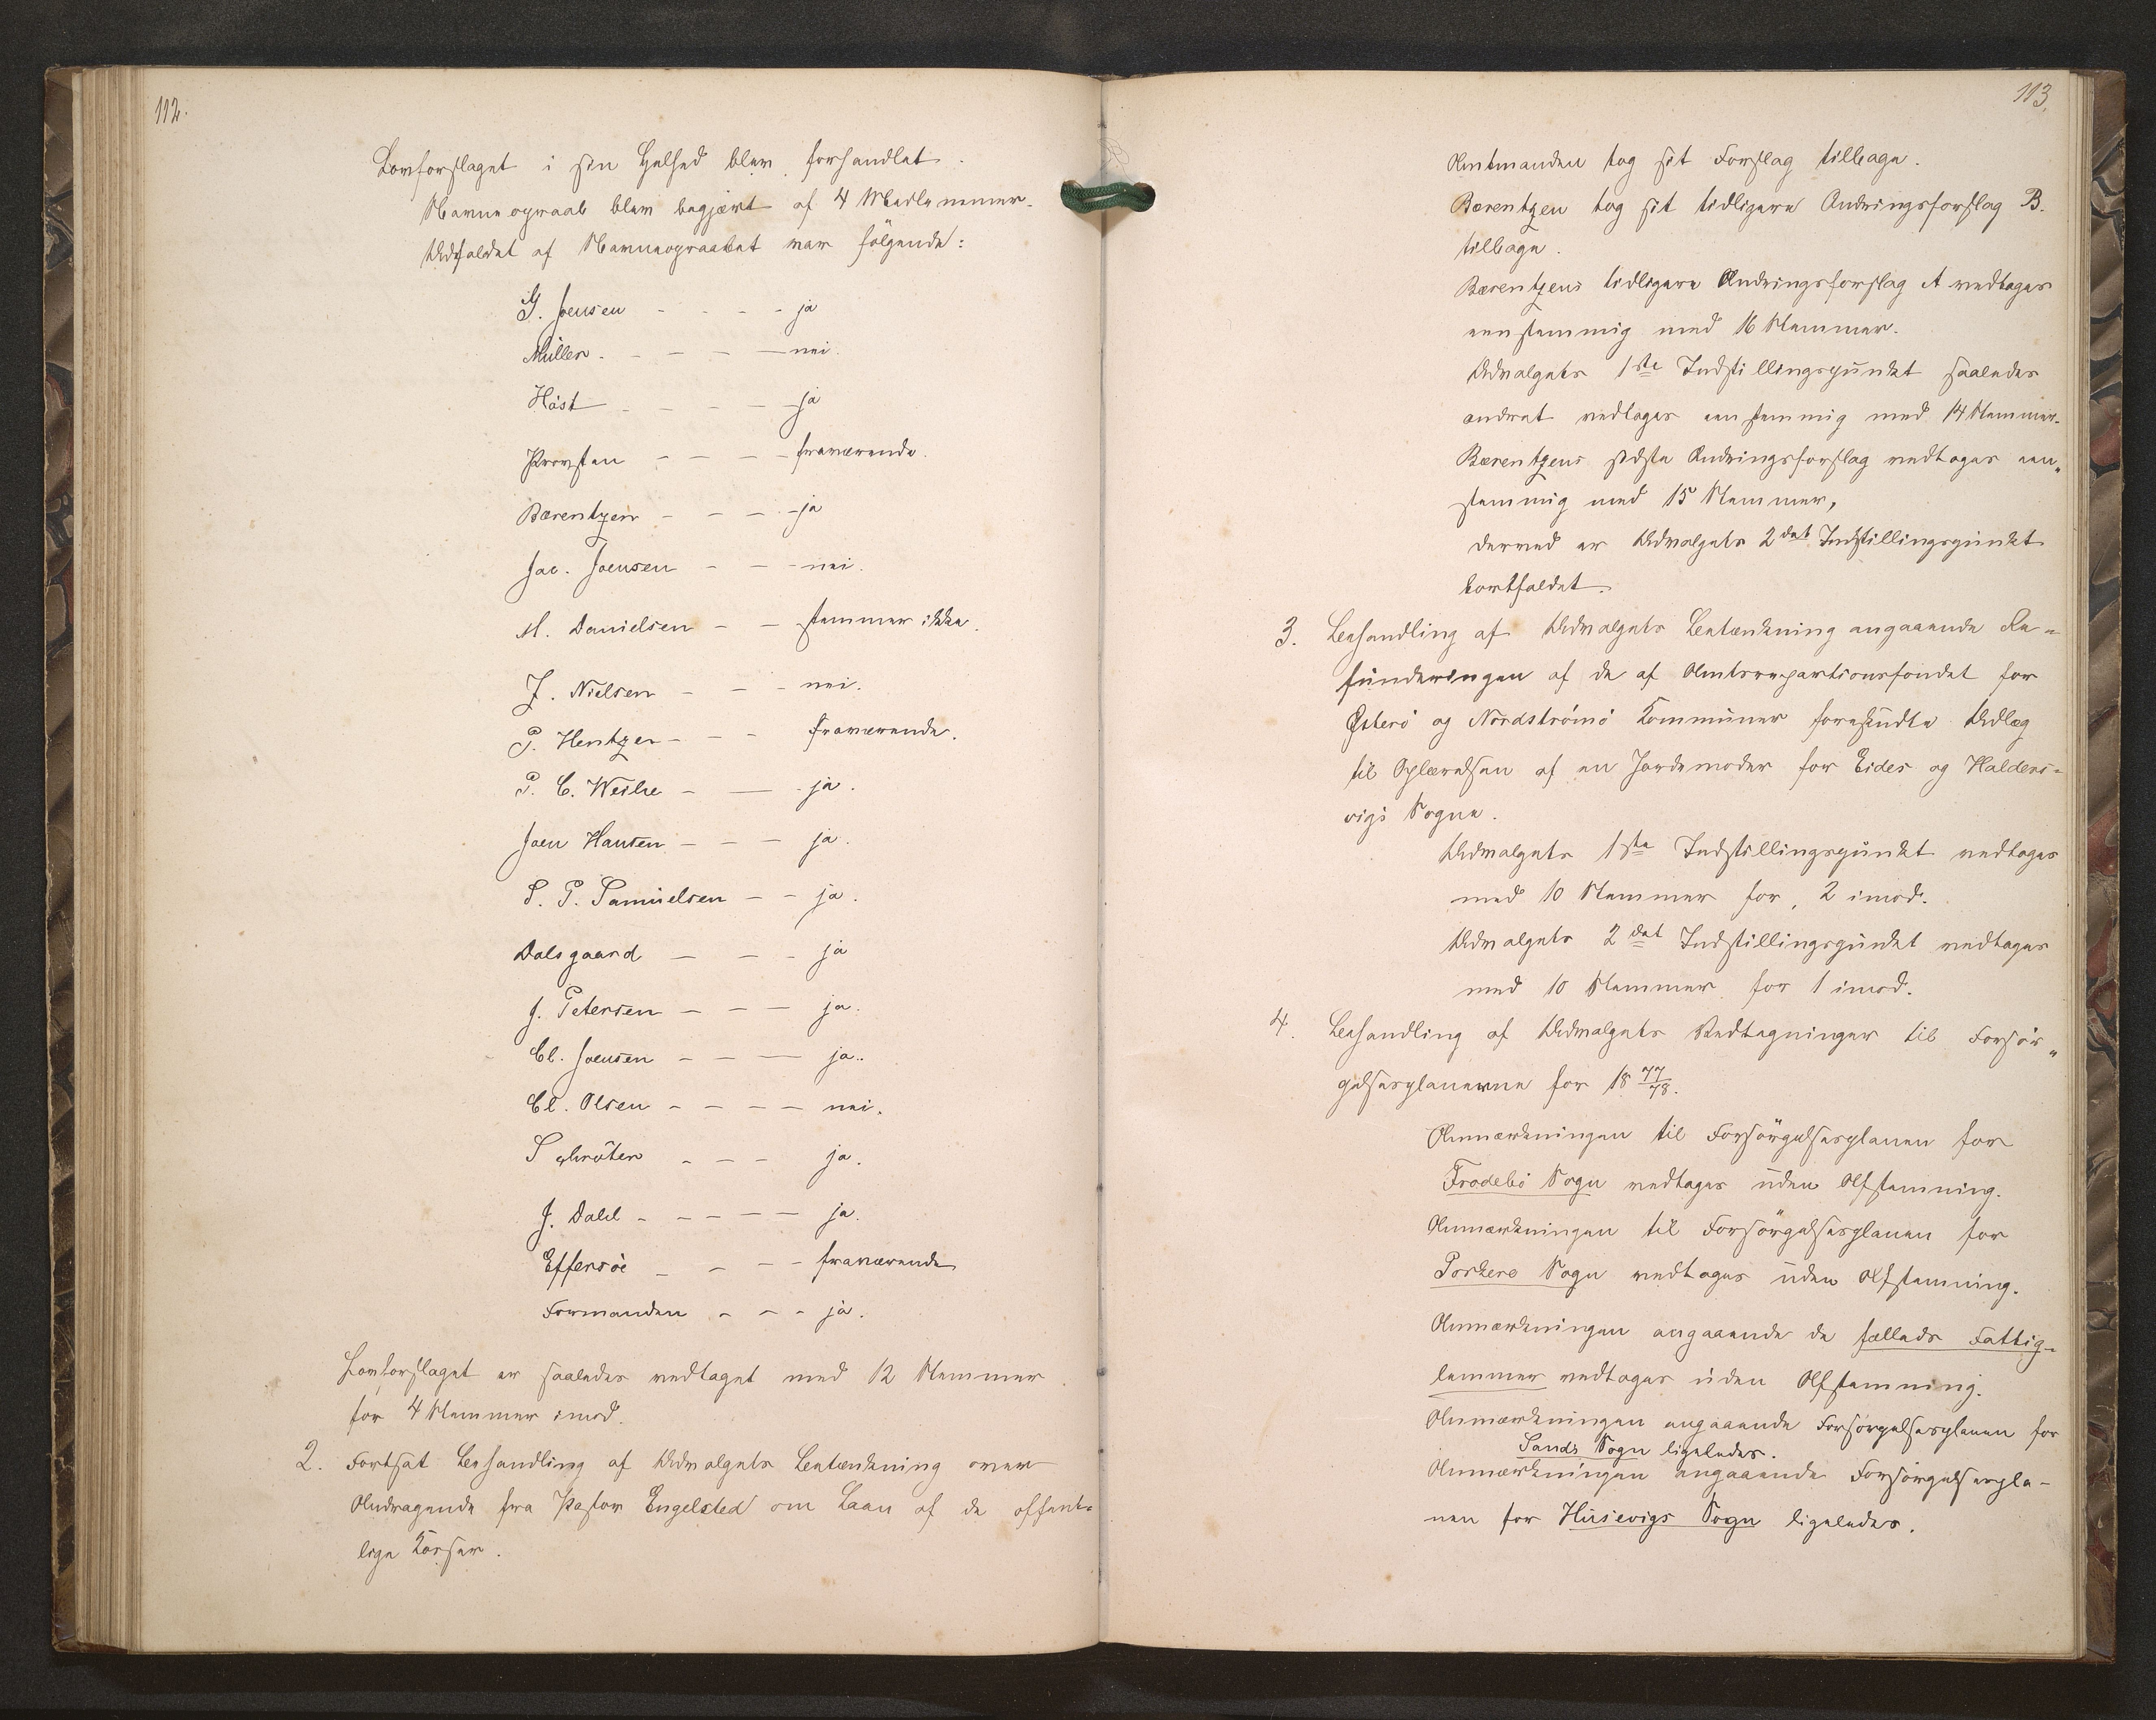 112.
Lovforslaget i sin Helhed blev forhandlet.
Navneopraab blev begjært af 4 Medlemmer.
Udfaldet af Navneopraabet var følgende:
G. Joensen - - - - ja
Müller - - - - nei.
Höst - - - - ja
Provsten - - - - fraværende.
Bærentzen - - - - ja
Jac. Joensen - - - nei.
M. Danielsen - - stemmer ikke.
J. Nielsen - - - nei.
P. Hentze - - - fraværende.
P. C. Weihe - - - ja.
Joen Hansen - - - ja.
S. P. Samüelsen - - ja.
Dalsgaard - - - ja
J. Petersen - - - ja.
Cl. Joensen - - - ja.
Cl. Olsen - - - - nei.
Schröter - - - ja.
J. Dahl - - - - - ja.
Effersöe - - - - fraværende
Formanden - - - ja.
Lovforslaget er saaledes vedtaget med 12 Stemmer
for 4 Stemmer imod.
2. Fortsat Behandling af Udvalgets Betænkning over
Andragende fra Pastor Engelsted om Laan af de offent-
lige Kasser.
113.
Amtmanden tog sit Forslag tilbage.
Bærentzen tog sit tidligere Ændringsforslag B.
tilbage.
Bærentzens tidligere Ændringsforslag A vedtoges
eenstemmig med 16 Stemmer.
Udvalgets 1ste Indstillingspünkt saaledes
ændret vedtoges eenstemmig med 14 Stemmer.
Bærentzens sidste Ændringsforslag vedtoges een-
stemmig med 15 Stemmer,
derved er Udvalgets 2det Indstillingspünkt
bortfaldet.
3. Behandling af Udvalgets Betænkning angaaende Re-
fünderingen af de af Amtsrepartionsfondet for
Østerö og Nordströmö Kommüner foreskudte Udlæg
til Oplærelsen af en Jordemoder for Eides og Halders-
vigs Sogne.
Udvalgets 1ste Indstillingspünkt vedtoges
med 10 Stemmer for, 2 imod.
Udvalgets 2det Indstillingspünkt vedtoges
med 10 Stemmer for 1 imod.
4. Behandling af Udvalgets Vedtegninger til Forsör-
gelsesplanerne for 18 77/78.
Anmærkningen til Forsörgelsesplanen for
Frodebö Sogn vedtoges üden Afstemning.
Anmærkningen til Forsörgelsesplanen for
Porkere Sogn vedtoges üden Afstemning.
Anmærkningen angaaende de fælleds Fattig-
lemmer vedtoges üden Afstemning.
Anmærkningen angaaende Forsörgelsesplanen for
Sands Sogn ligeledes.
Anmærkningen angaaende Forsörgelsespla-
nen for Hüsevigs Sogn ligeledes.